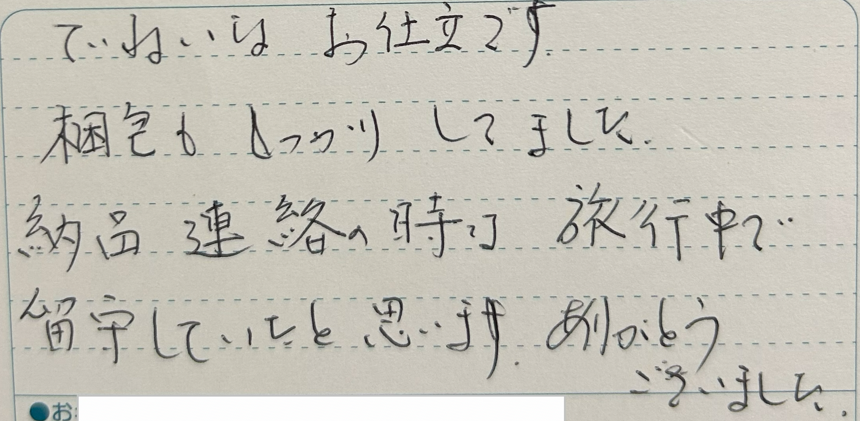 ていねいな お仕立です.
梱包も しっかり してました.
納品 連絡の時は 旅行中で
留守していたと思います. ありがとう
ございました.
●お